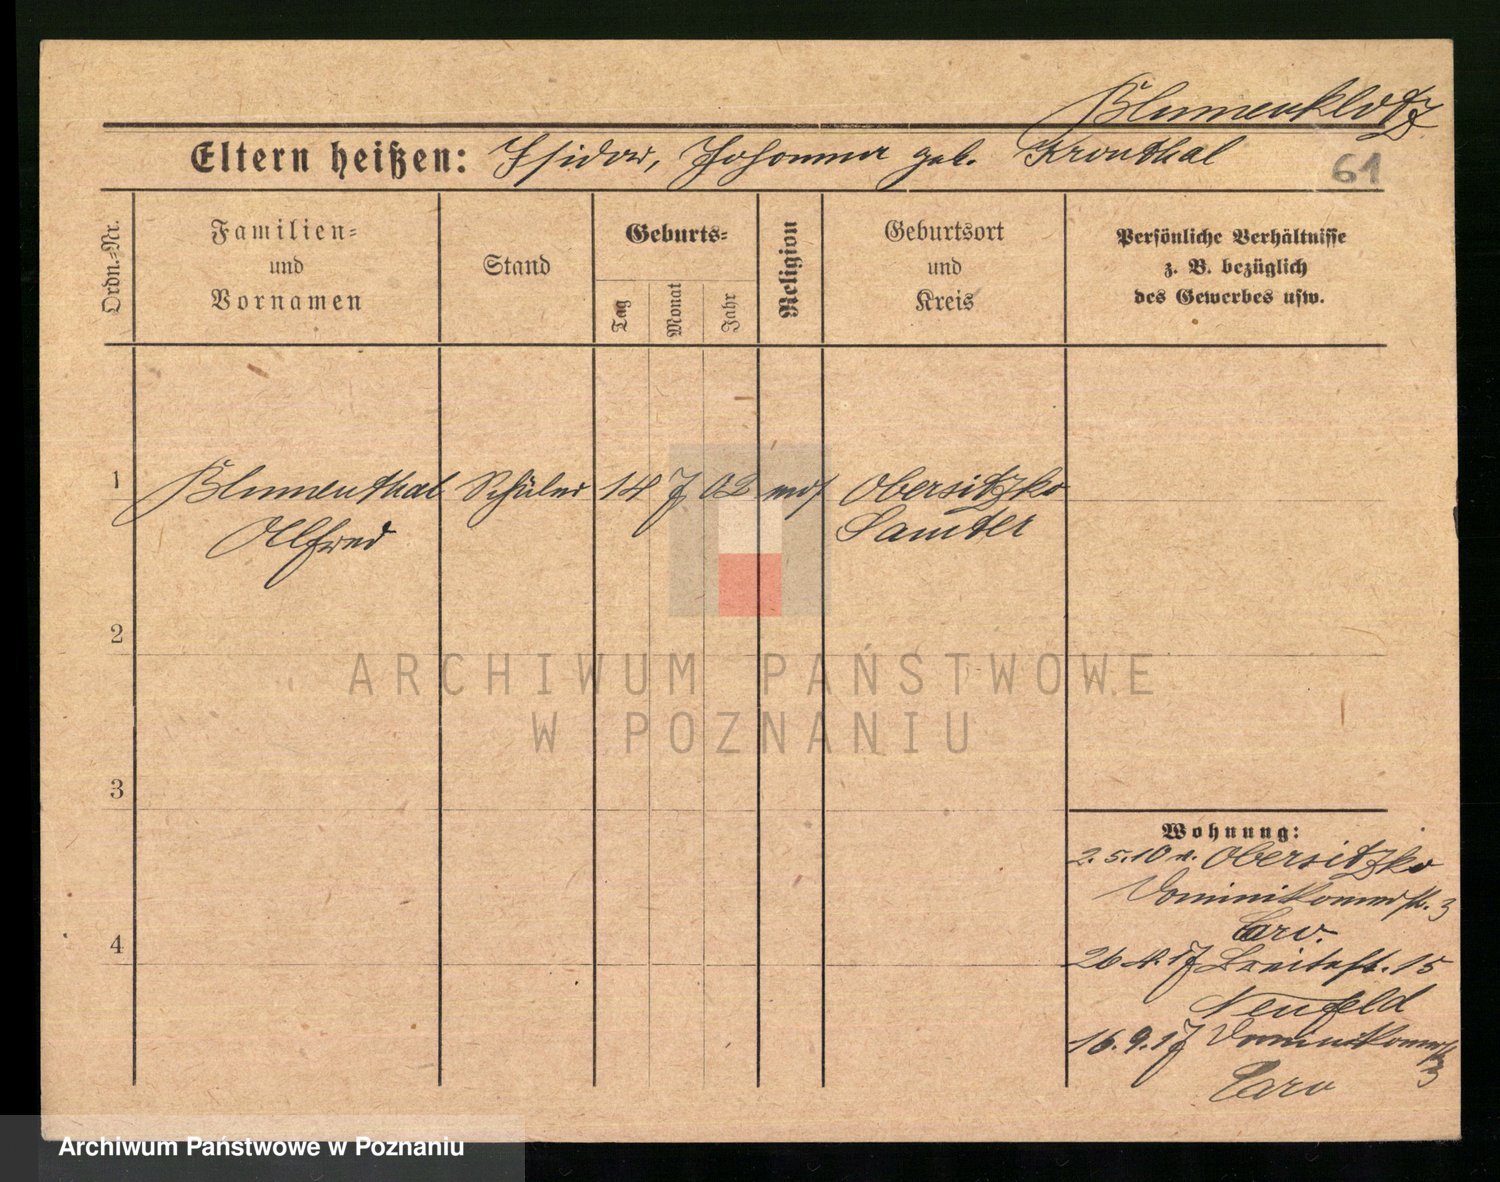 Blumenklotz
Eltern heißen: Isidor, Johanna geb. Kronthal
61
Ordn.=Nr.
Familien=
und
Vornamen
Stand
Geburts=
Tag
Monat
Jahr
Religion
Geburtsort
und
Kreis
Persönliche Verhältnisse
z. B. bezüglich
des Gewerbes usw.
1 Blumenthal Schüler 14 7 02 mos Obersitzko
Alfred Samter
2
3
4
ARCHIWUM PAŃSTWOWE
W POZNANIU
Wohnung:
2.5.10 v. Obersitzko
Dominikanerstr. 3
Caro.
26.4.17 Breitestr. 15
Neufeld
16.9.17 Dominikanerstr. 3
Caro
Archiwum Państwowe w Poznaniu